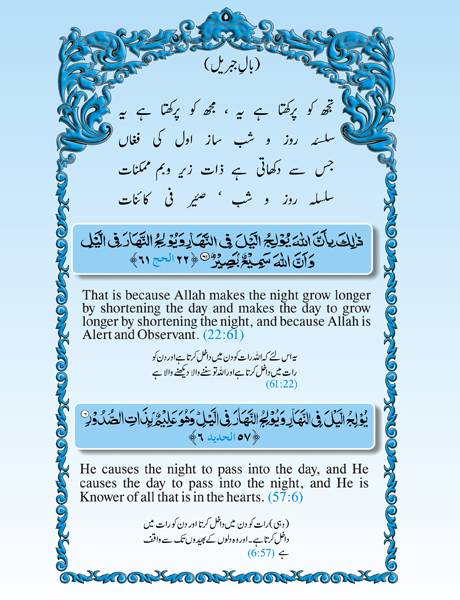 (بالِ جبریل)
تجھ کو پرکھتا ہے یہ ، مجھ کو پرکھتا ہے یہ
سلسلۂ روز و شب ساز اول کی فغاں
جس سے دکھاتی ہے ذات زیر وبم ممکنات
سلسلہ روز و شب ' صیر فی کائنات
ذٰلِكَ بِاَنَّ اللّٰهَ يُوْلِجُ الَّيْلَ فِى النَّهَارِ وَيُوْلِجُ النَّهَارَ فِى الَّيْلِ
وَاَنَّ اللّٰهَ سَمِيْعٌۢ بَصِيْرٌ ﴿۲۲ الحج ۶۱﴾
That is because Allah makes the night grow longer
by shortening the day and makes the day to grow
longer by shortening the night, and because Allah is
Alert and Observant. (22:61)
یہ اس لئے کہ اللہ رات کو دن میں داخل کرتا ہے اور دن کو
رات میں داخل کرتا ہے اور اللہ تو سننے والا دیکھنے والا ہے
(61:22)
يُوْلِجُ الَّيْلَ فِى النَّهَارِ وَيُوْلِجُ النَّهَارَ فِى الَّيْلِ وَهُوَ عَلِيْمٌۢ بِذَاتِ الصُّدُوْرِ
﴿۵۷ الحديد ۶﴾
He causes the night to pass into the day, and He
causes the day to pass into the night, and He is
Knower of all that is in the hearts. (57:6)
(وہی) رات کو دن میں داخل کرتا اور دن کو رات میں
داخل کرتا ہے۔ اور وہ دلوں کے بھیدوں تک سے واقف
ہے (6:57)